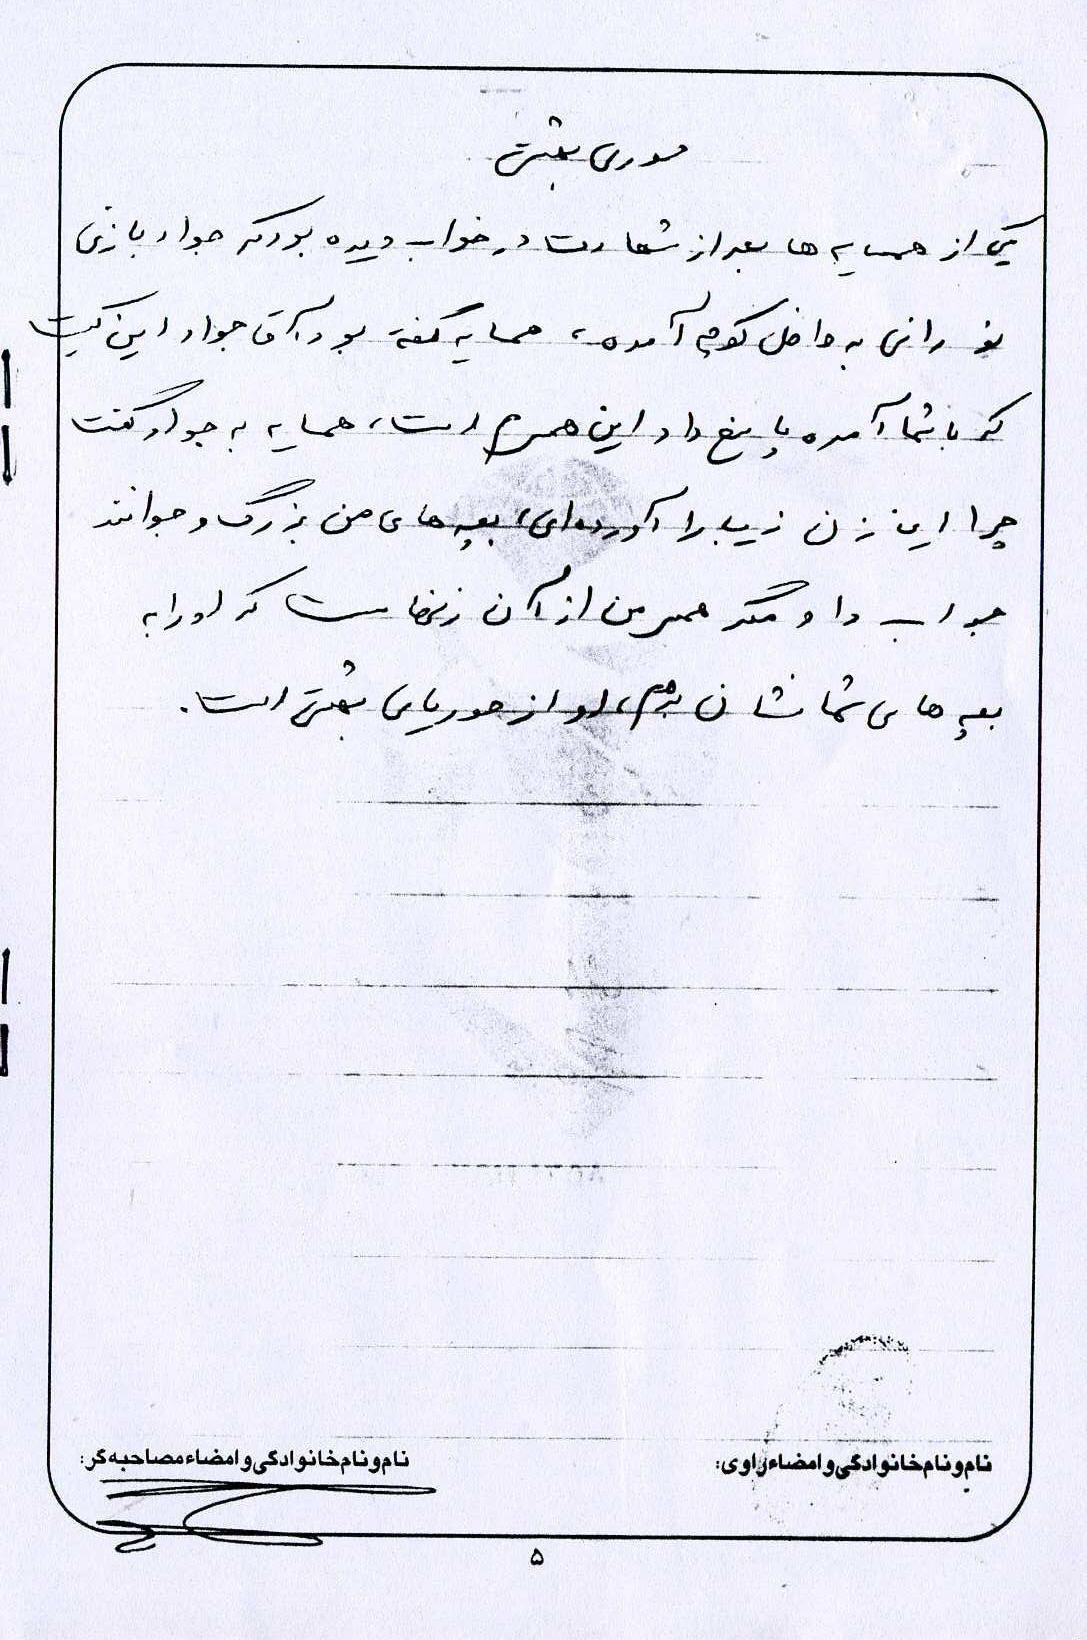 حوری بهشتی
یکی از همسایه ها بعد از شهادت در خواب دیده بود که جواد با زنی
نورانی به داخل کوچه آمده، همسایه گفته بود آقا جواد این کیست
که با شما آمده پاسخ داد این همسرم است، همسایه به جواد گفت
چرا این زن زیبا را آورده‌ای، بچه های من بزرگ و جوانند
جواب داد مگر همسر من از آن زنهاست که او را به
بچه های شما نشان بدهم، او از حوریای بهشتی است.
نام و نام خانوادگی و امضاء راوی:
نام و نام خانوادگی و امضاء مصاحبه گر:
۵